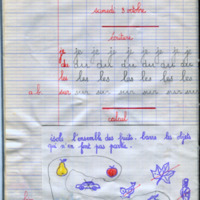 samedi 3 octobre
écriture
je je je je je je je je
du du du du du du du
les les les les les les les
sur sur sur sur sur sur sur
calcul
isole l'ensemble des fruits. barre les objets
qui n'en font pas partie.